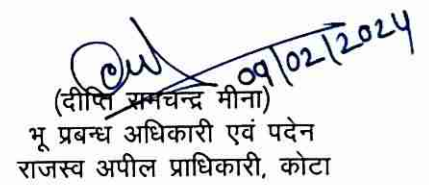 09/02/2024
(दीप्ति रामचन्द्र मीना)
भू प्रबन्ध अधिकारी एवं पदेन
राजस्व अपील प्राधिकारी, कोटा